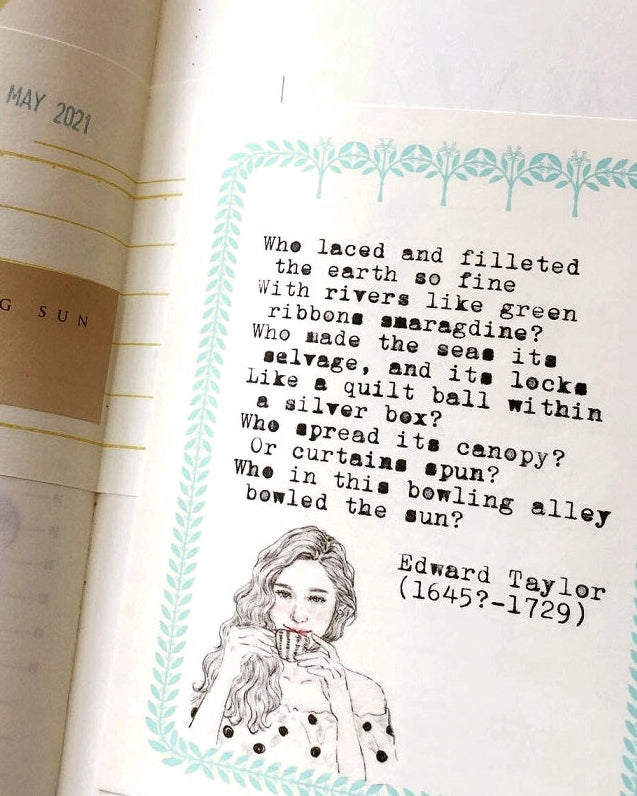 MAY 2021
G SUN
Who laced and filleted
the earth so fine
With rivers like green
ribbons smaragdine?
Who made the seas its
selvage, and its locks
Like a quilt ball within
a silver box?
Who spread its canopy?
Or curtains spun?
Who in this bowling alley
bowled the sun?
Edward Taylor
(1645?-1729)